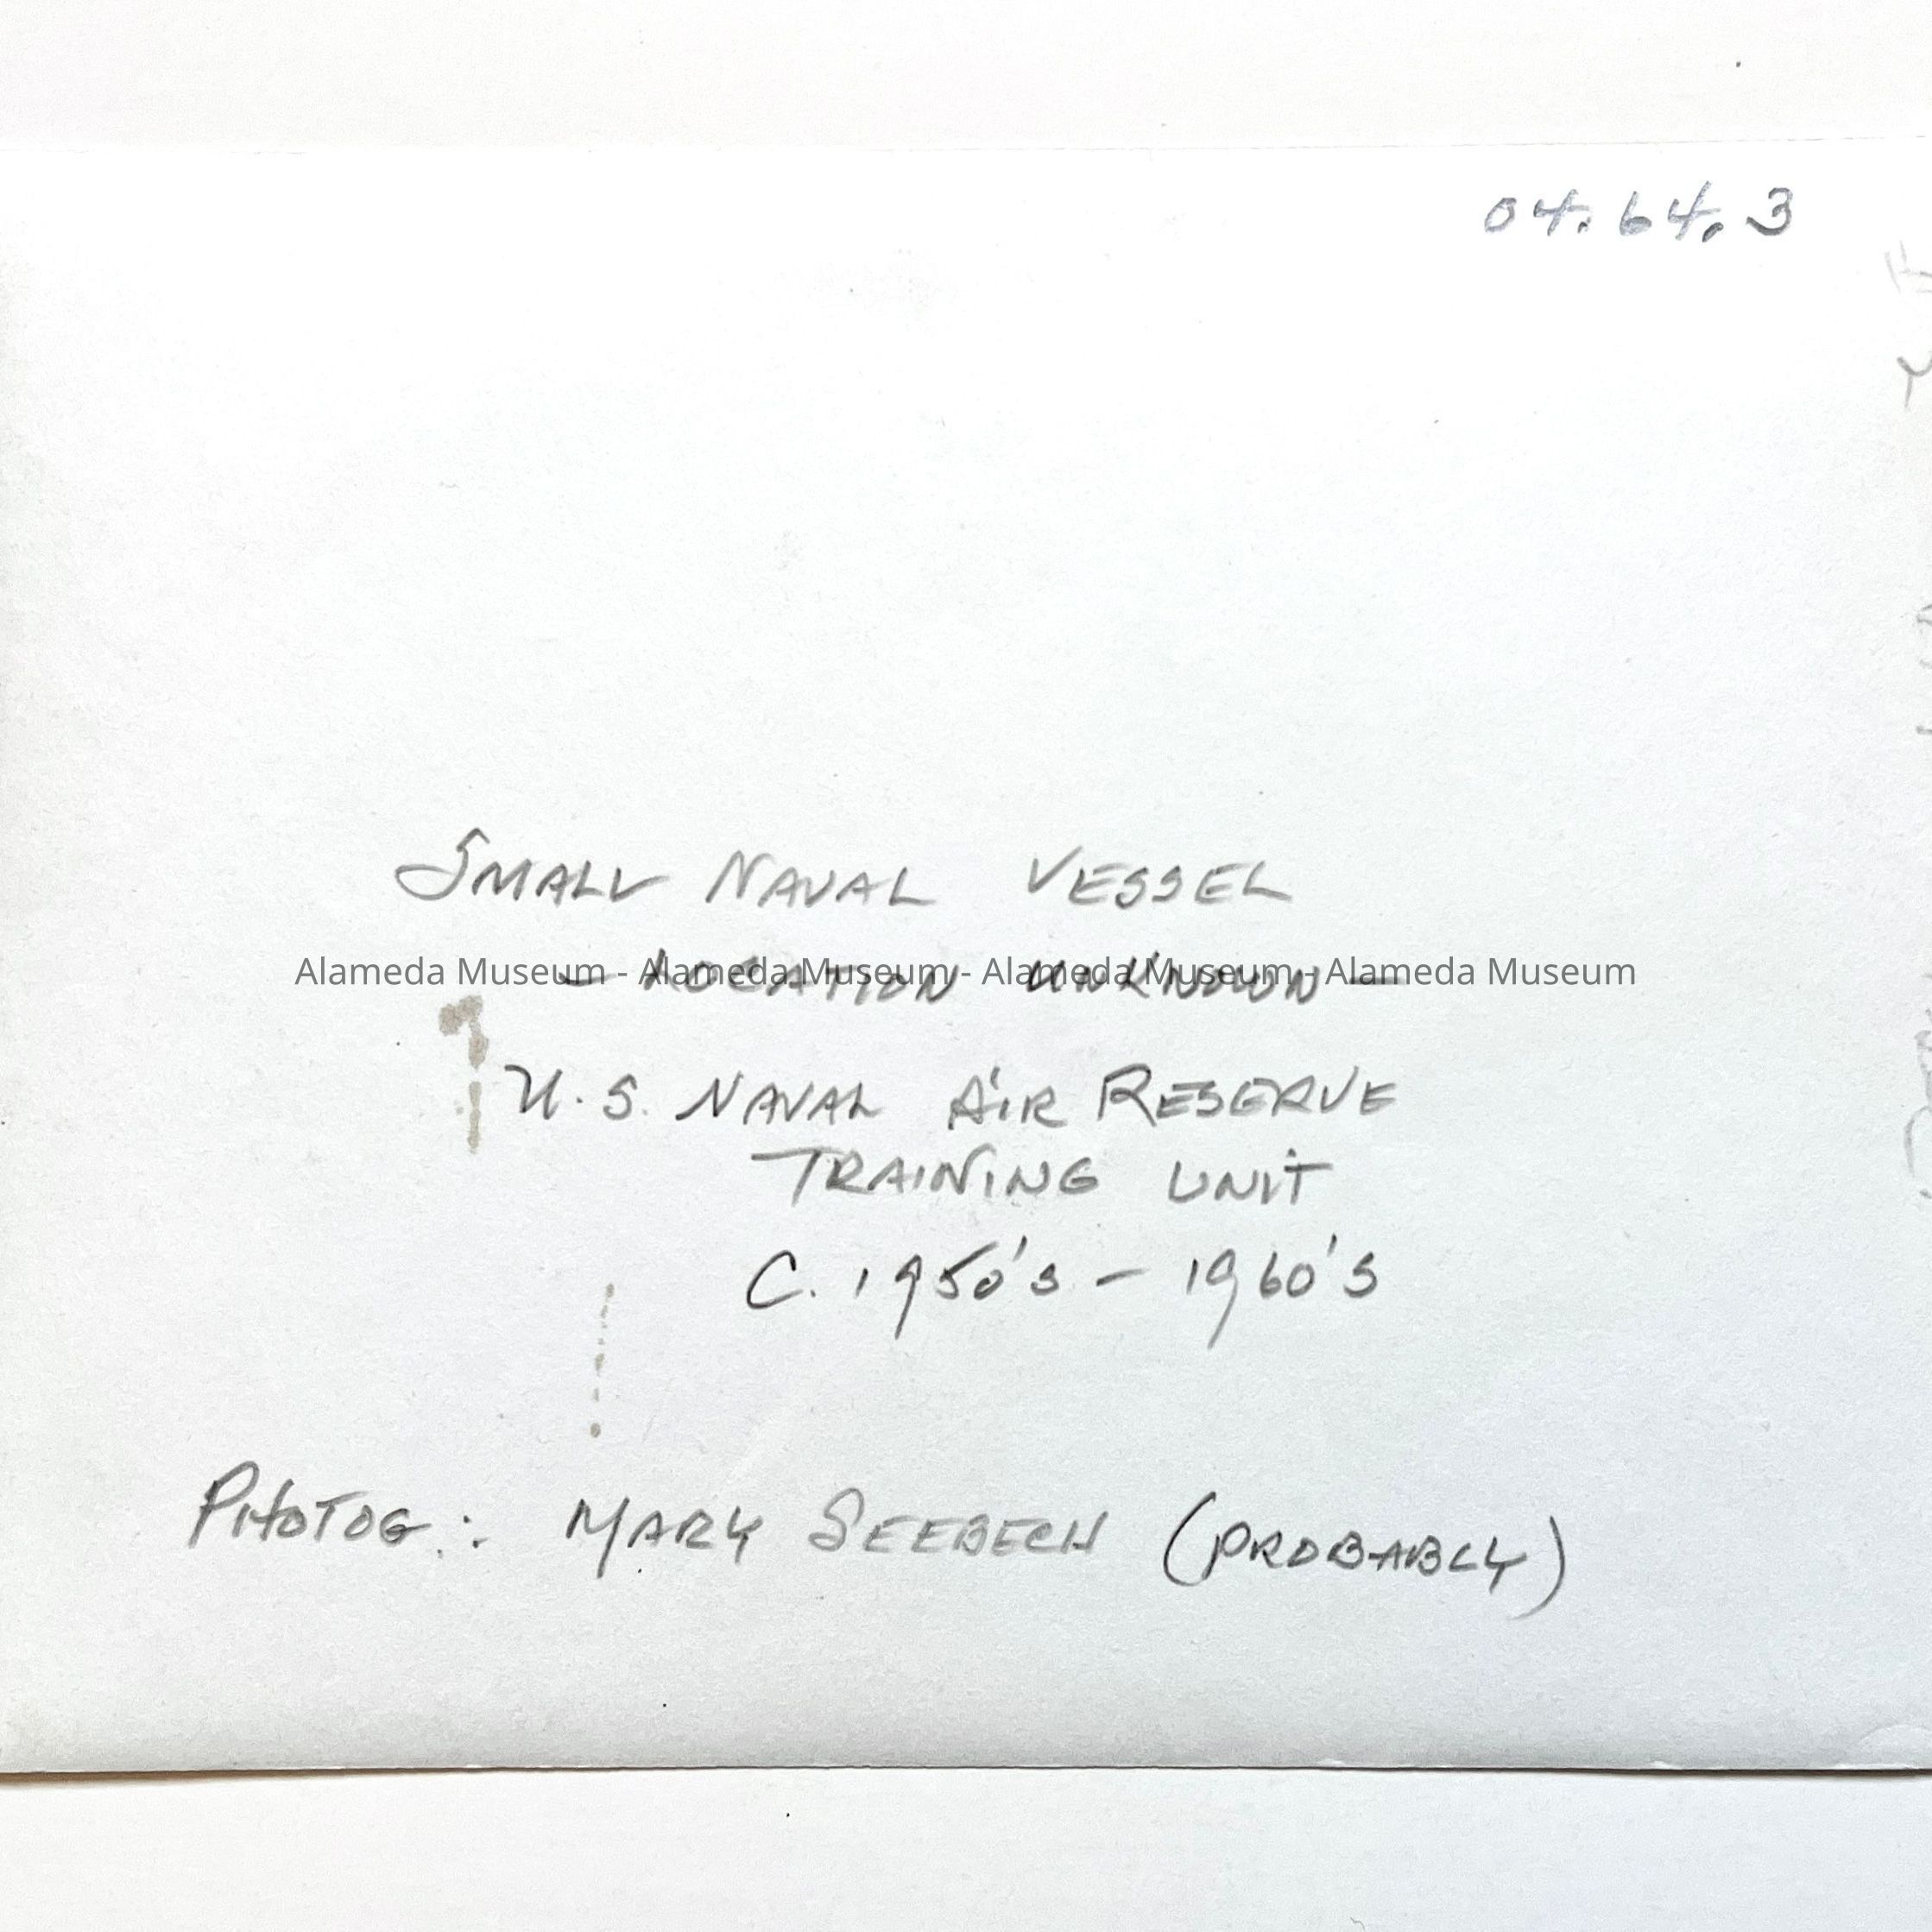 04.64.3
SMALL NAVAL VESSEL
— LOCATION UNKNOWN —
Alameda Museum - Alameda Museum - Alameda Museum - Alameda Museum
U.S. NAVAL AIR RESERVE
TRAINING UNIT
C. 1950's — 1960's
PHOTOG.: MARY SEEBECH (PROBABLY)